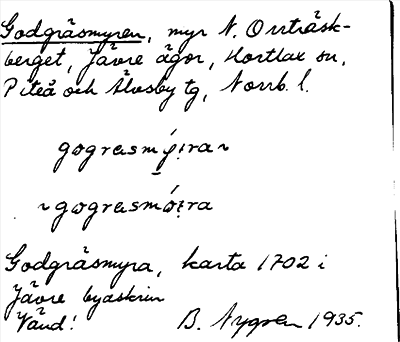 Godgräsmyren, myr N. Orrträsk-
berget, Jävre ägor, Hortlax sn,
Piteå och Älvsby tg, Norrb. l.
Godgräsmyra, karta 1702 i
Jävre byaskrin
Vänd! B. Nygren 1935.